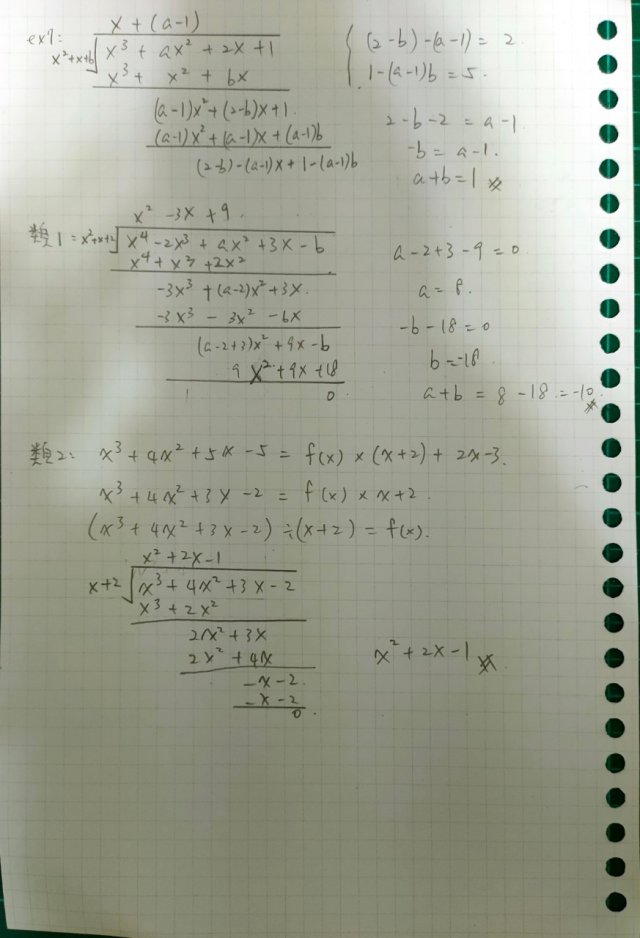 ex7:
x + (a-1)
x²+x+b √ x³ + ax² + 2x + 1
x³ + x² + bx
(a-1)x² + (2-b)x + 1
(a-1)x² + (a-1)x + (a-1)b
(2-b) - (a-1)x + 1 - (a-1)b
{ (2-b) - (a-1) = 2
1 - (a-1)b = 5.
2 - b - 2 = a - 1
-b = a - 1.
a + b = 1
類1 =
x² - 3x + 9
x²+x+2 √ x⁴ - 2x³ + ax² + 3x - b
x⁴ + x³ + 2x²
-3x³ + (a-2)x² + 3x
-3x³ - 3x² - 6x
(a-2+3)x² + 9x - b
9x² + 9x + 18
0
a - 2 + 3 - 9 = 0
a = 8.
-b - 18 = 0
b = -18
a + b = 8 - 18 = -10
類2: x³ + 4x² + 5x - 5 = f(x) × (x+2) + 2x-3.
x³ + 4x² + 3x - 2 = f(x) × x+2.
(x³ + 4x² + 3x - 2) ÷ (x+2) = f(x).
x² + 2x - 1
x+2 √ x³ + 4x² + 3x - 2
x³ + 2x²
2x² + 3x
2x² + 4x
-x - 2
-x - 2
0
x² + 2x - 1